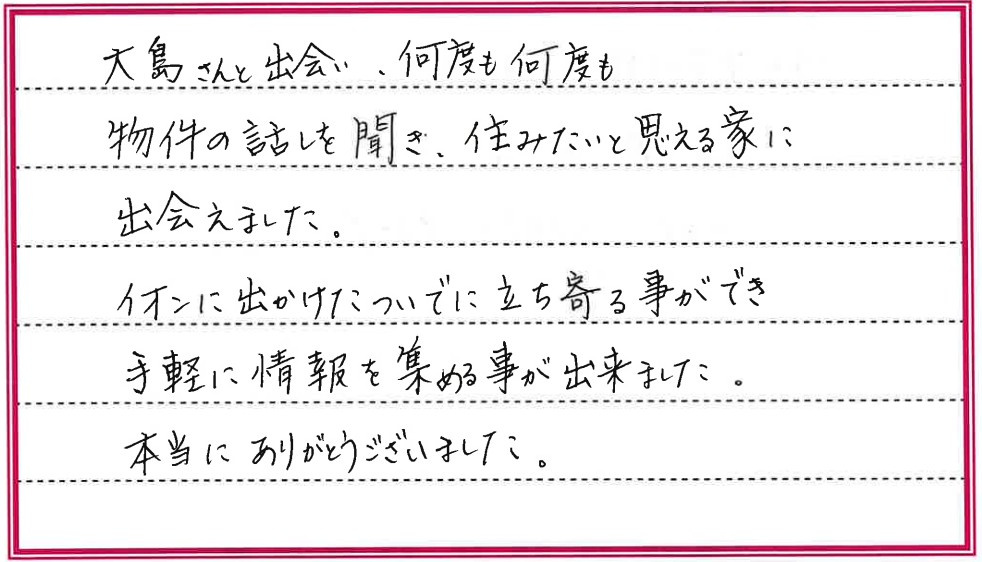 大島さんと出会い、何度も何度も
物件の話しを聞き、住みたいと思える家に
出会えました。
イオンに出かけたついでに立ち寄る事ができ
手軽に情報を集める事が出来ました。
本当にありがとうございました。